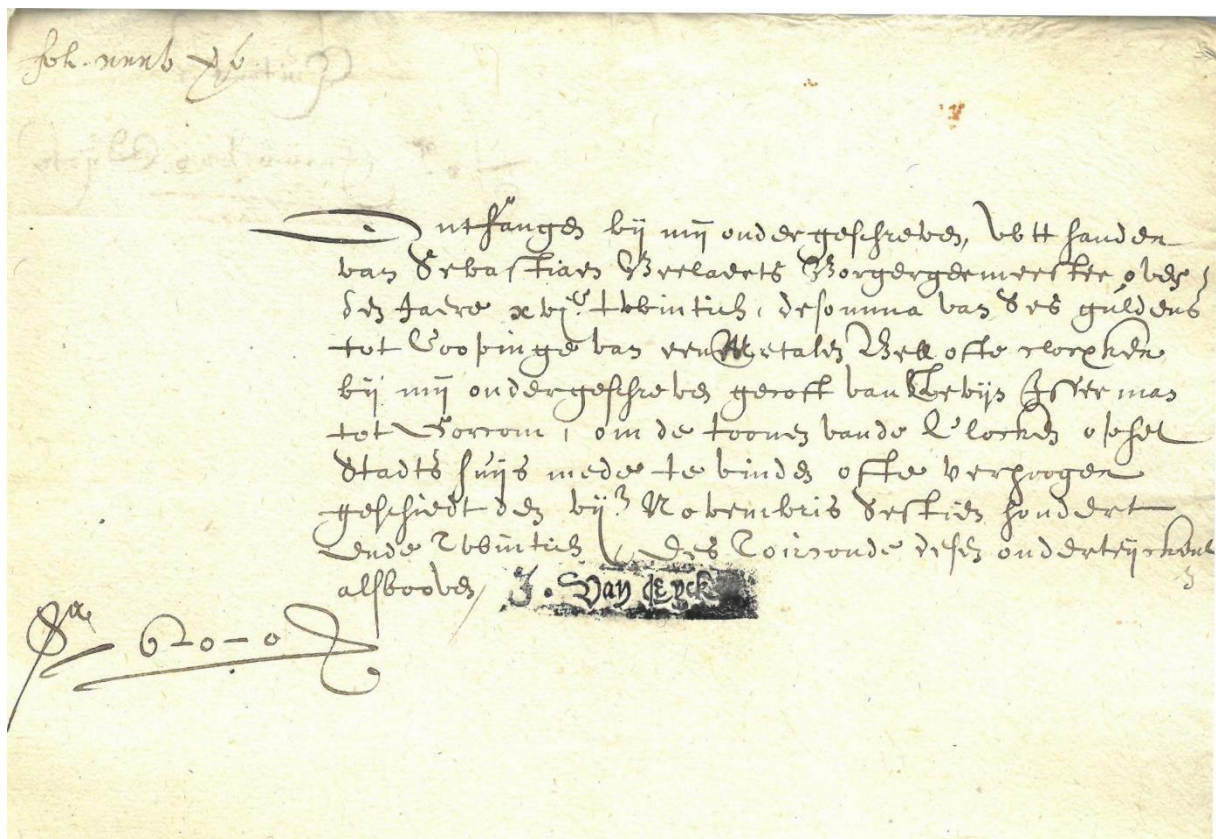 Ontfangen bij mij ondergeschreven, vutt handen
van Sebastiaen Beelaerts Borgergemeester over
den Jaere xvj.c twintich, de somma van Ses guldens
tot Coopinge van een Metalen Bell ofte clocxken
bij mij ondergeschreven gecoft van
tot Gorcom, om de toonen vande Clocken op het
Stadts huijs mede te vinden ofte verhoogen
geschiedt den vij.n Novembris Sestien hondert
ende Twintich, des Toirconde desen onderteijckent
alsbooven,
J. Van Eyck
Sa 6-0-0